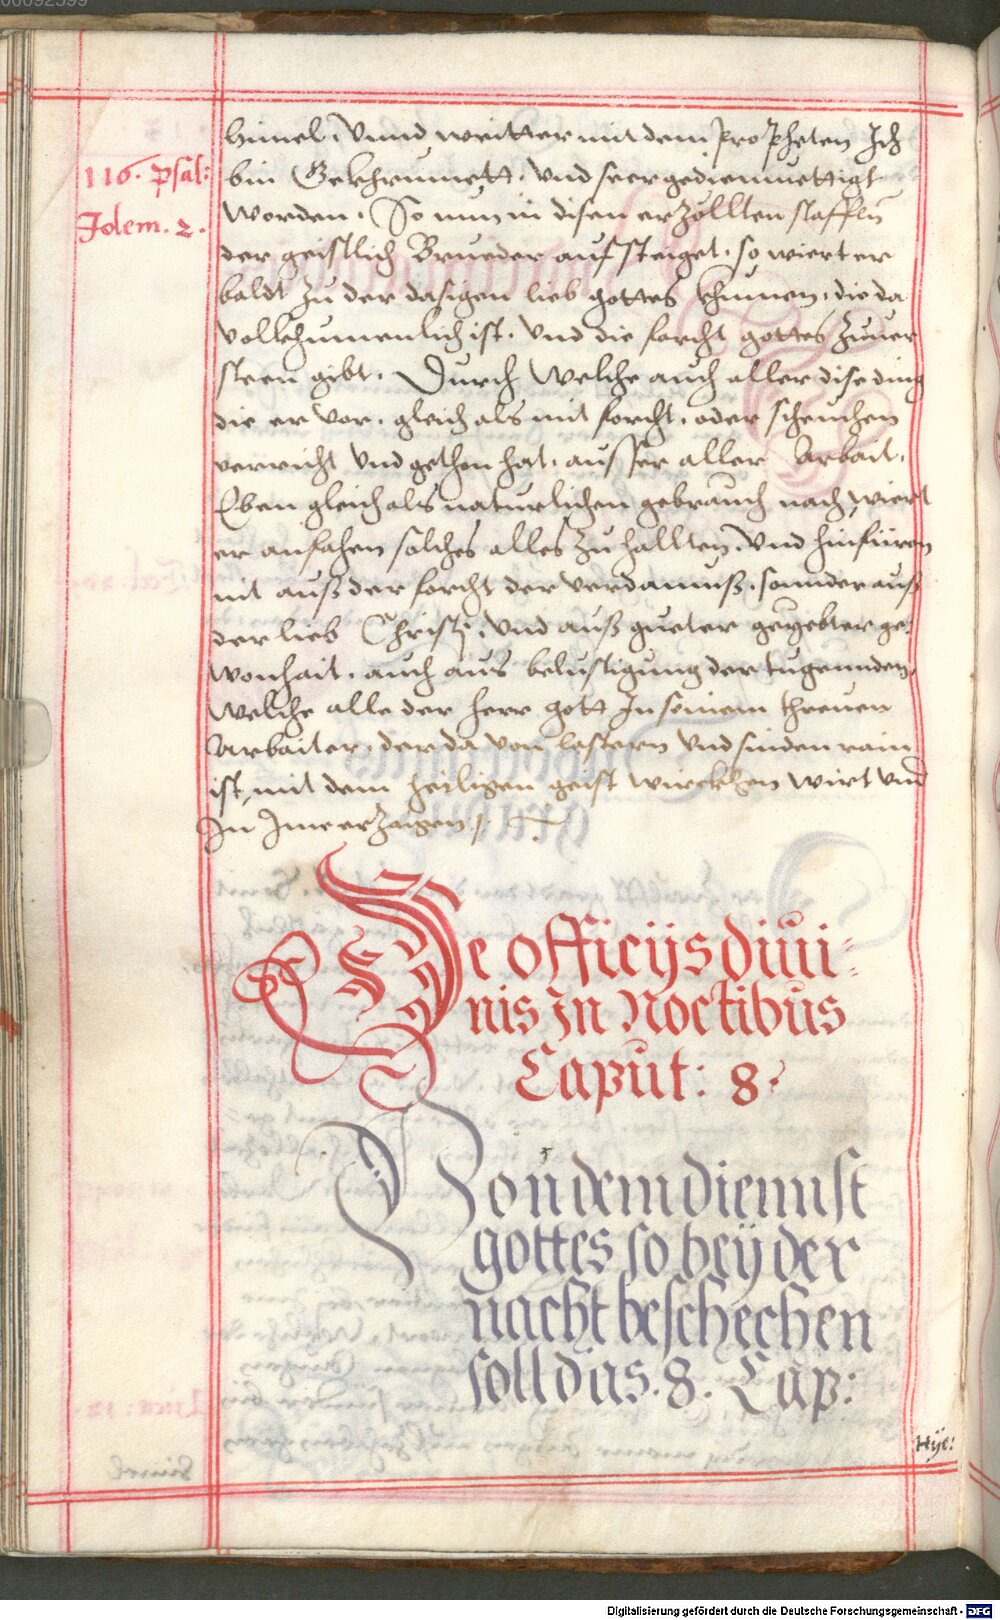 himel. Vnnd weitter mit dem Propheten Ich
116. Psal:
bin Gekhrümett. vnd seer gediemüettigt
worden. So nun in disen erzöllten stafflen
Idem. 2.
der geistlich Brueder aufsteiget. so wiert er
baldt zu der dasigen lieb gottes khumen, die da
volkhumenlich ist. vnd die forcht gottes zuuer
steen gibt. Durch welche auch aller dise ding
die er vor. gleich als mit forcht. oder scheuchen
verricht vnd gethon hat. ausser aller Arbait.
Eben gleich als naturlichen gebrauch nach, wiert
er anfahen solches alles zu hallten. vnd hinfüron
nit auß der forcht der verdamnuß. sonnder auß
der lieb Christi. vnd auß gueter geyebter ge:
wonhait. auch aus belustigung der tugennden,
welche alle der herr gott In seinem threuen
Arbaiter. der da von lastern vnd sinden rain
ist, mit dem heiligen geist wirckhen wirt vnd
In Ime erzaigen.
De officijs diui:
nis In Noctibus
Caput: 8.
Von dem diennst
gottes so beÿ der
nacht beschechen
soll das. 8. Cap:
Hÿe:
Digitalisierung gefördert durch die Deutsche Forschungsgemeinschaft - DFG